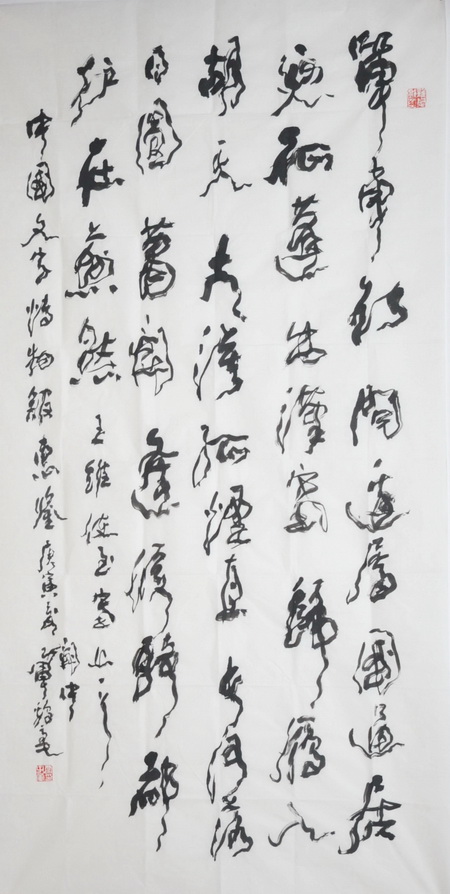 單車欲問邊屬國過居
延征蓬出漢塞歸雁入
胡天大漠孤煙直長河落
日圓蕭關逢候騎都
護在燕然 王維使至塞上
中國文字博物館惠鑒 庚寅